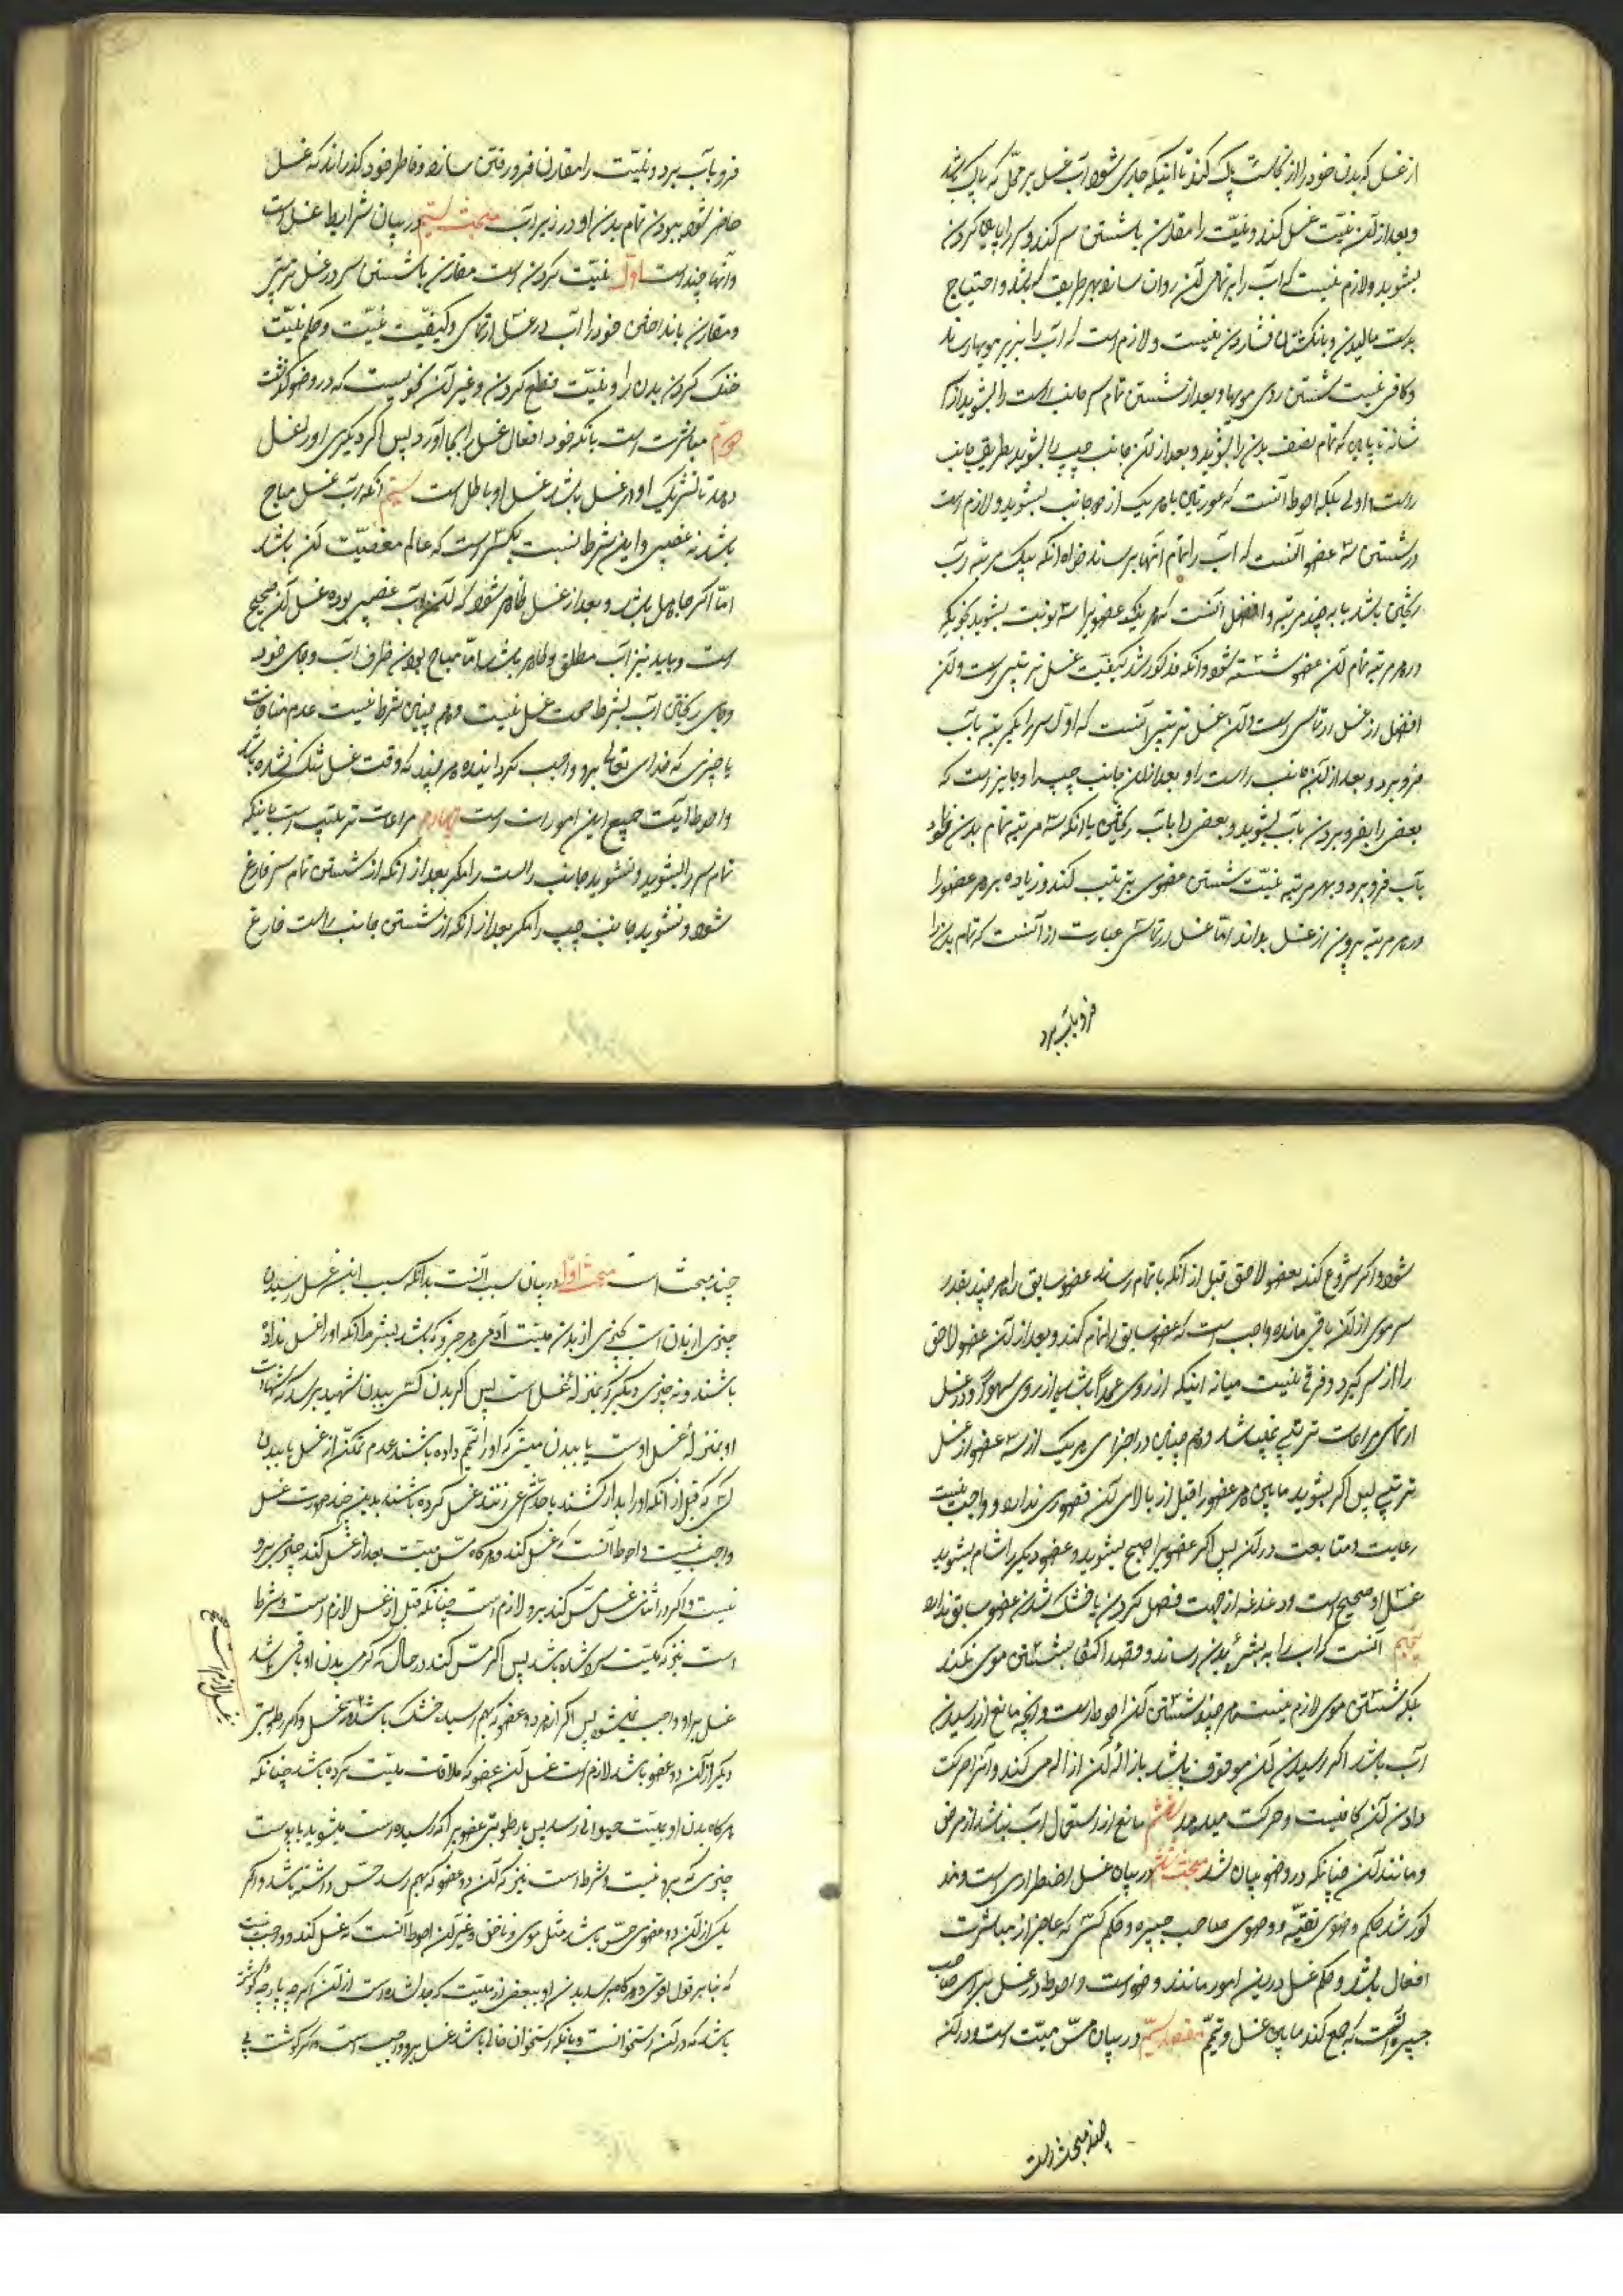 از غسل که بدن خود را از نجاست پاک کند تا اینکه جاری شود آب غسل بر محل که پاک باشد
و بعد از آن نیت غسل کند و نیت را مقارن با شستن سر کند و سر را با پاره کردن
بشوید و لازم نیست که آب را بر تمامی آن روان سازد بهر طریق که باشد و احتیاج
بدست مالیدن و بانگشتان فشاردن نیست و لازم است که آب را بزیر مویها رساند
و کافی نیست شستن روی مویها و بعد از شستن تمام سر جانب راست را بشوید از
شانه تا پای که تمام نصف بدن را بشوید و بعد از آن جانب چپ را بشوید بطریق جانب
راست و اولی بلکه احوط آنست که عورتین با هر یک از دو جانب بشوید و لازم است
در شستن سه عضو آنست که آب را تمام آنها برساند خواه آنکه بیک مرتبه آب
ریختن باشد یا به چند مرتبه و افضل آنست که هر یک عضو را سه نوبت بشوید بنحویکه
در هر مرتبه تمام آن عضو شسته شود و آنکه مذکور شد کیفیت غسل ترتیبی است و آن
افضل از غسل ارتماسی است و آن غسل ترتیبی آنست که اول سر را بیک مرتبه بآب
فرو برد و بعد از آن جانب راست را و بعد از آن جانب چپ را و جایز است که
بعضی را بفرو بردن بآب بشوید و بعضی را بآب ریختن یا آنکه سه مرتبه تمام بدن خود
بآب فرو برد و بهر مرتبه نیت شستن عضوی بترتیب کند و زیاده بر هر عضو را
در هر مرتبه بیرون از غسل بداند اما غسل ارتماسی عبارت از آنست که تمام بدن را
فرو بآب برد
فرو بآب برد و نیت را مقارن فرو رفتن سازد و خاطر خود گذراند که غسل
حاضر شود ببودن تمام بدن او در زیر آب مبحث سیم در بیان شرایط غسل است
و آنها چند است اول نیت کردن است مقارن با شستن سر در غسل ترتیبی
و مقارن با انداختن خود را آب در غسل ارتماسی و کیفیت نیت و حکم نیت
خنک کردن بدن را و نیت قطع کردن و غیر آن نحویست که در وضو گذشت
دویم مباشرت است بانکه خود افعال غسل را بجا آورد پس اگر دیگری او را غسل
دهد یا شریک او در غسل باشد غسل او باطل است سیم آنکه آب غسل مباح
باشد نه غصبی و این شرط نسبت بکسی است که عالم بغصبیت آن باشد
اما اگر جاهل باشد و بعد از غسل ظاهر شود که آن آب غصبی بوده غسل آن صحیح
است و باید نیز آب مطلق و طاهر باشد اما مباح بودن ظرف آب و جای خود
و جای ریختن آب شرط صحت غسل نیست و هم چنین شرط نیست عدم منافات
با چیزی که خدای تعالی برو واجب گردانیده هر چند که وقت غسل تنک نشده باشد
و احوط رعایت جمیع این امورات است چهارم مراعات ترتیب است باینکه
تمام سر را بشوید و نشوید جانب راست را مگر بعد از آنکه از شستن تمام سر فارغ
شود و نشوید جانب چپ را مگر بعد از آنکه از شستن جانب راست فارغ
شود و اگر شروع کند بعضو لاحق قبل از آنکه باتمام رساند عضو سابق را هر چند بقدر
سر موی از آن باقی مانده واجب است که عضو سابق را تمام کند و بعد از آن عضو لاحق
را از سر گیرد و فرقی نیست میانه اینکه از روی عمد باشد یا از روی سهو و در غسل
ارتماسی مراعات ترتیب نمیباشد و هم چنین در اجزای هر یک از سه عضو از غسل
ترتیبی پس اگر بشوید پایین هر عضو را قبل از بالای آن قصوری ندارد و واجب نیست
رعایت و متابعت در آن پس اگر عضویرا صبح بشوید و عضو دیگر را شام بشوید
غسل او صحیح است و دغدغه از جهت فصل کردن یا خشک شدن عضو سابق ندارد
پنجم آنست که آب را به بشرهٔ بدن رساند و قصد اکتفا بشستن موی نکند
بلکه شستن موی لازم نیست هر چند شستن آن احوط است و آنچه مانع از رسیدن
آب باشد اگر رسیدن آن موقوف باشد بازالهٔ آن ازاله می کند و اگر حرکت
دادن آن کافیست و حرکت میدهد ششم مانع از استعمال آب نباشد از مرض
و مانند آن چنانکه در وضو بیان شد مبحث در بیان غسل اضطراری است و مذ
کور شد حکم وضوی تقیه و وضوی صاحب جبیره و حکم کسی که عاجز از مباشرت
افعال باشد و حکم غسل درین امور مانند وضوست و احوط در غسل برای صاحب
جبیره آنست که جمع کند مابین غسل و تیمم مقصد سیم در بیان مس میت است و در آن
چند مبحث است
چند مبحث است مبحث اول در بیان سبب آنست بدانکه سبب این غسل رسیدن
جزوی از بدن است بجزوی از بدن میت آدمی هر جزو که باشد بشرط آنکه او را غسل نداده
باشند و نه چیزی دیگر که بمنزلهٔ غسل است پس اگر بدن کسی ببدن شهید برسد که شهادت
او بمنزلهٔ غسل اوست یا ببدن میتی که او را تیمم داده باشند عدم تمکن از غسل یا ببدن
کسی که قبل از آنکه او را بدار کشند یا حد شرعی زنند غسل کرده باشند بدین چند صورت غسل
واجب نیست و احوط آنست که غسل کند و هرگاه مس میت بعد از غسل کند چیزی برو
نیست و اگر در اثنای غسل مس کند برو لازم است چنانکه قبل از غسل لازم است و شرط
است نیز که میت سرد شده باشد پس اگر مس کند در حال که گرمی بدن او باقی باشد
غسل بر او واجب نمیشود پس اگر از هر دو عضو که بهم رسیده خشک باشد غسل و اگر رطوبتی
دیگر از آن دو عضو باشد لازم است غسل آن عضو که ملاقات میت کرده باشد چنانکه
هرگاه بدن او بمیت حیوانی رسد پس با رطوبتی عضویرا که رسیده است میشوید یا پوست
چیزی که برو نیست و شرط است نیز که آن دو عضو که بهم رسد حس داشته باشد و اگر
یکی از آن دو عضو بی حس باشد مثل موی و ناخن و غیر آن احوط آنست که غسل کند و واجب نیست
که بنا بر قول اقوی و هرگاه برسد بدن او ببعضی از میت که جدا شده است از آن اگر چه پارچه گوشت
باشد که در آن استخوانست و بانکه استخوان خالی باشد غسل برو واجب است و اگر گوشت بی